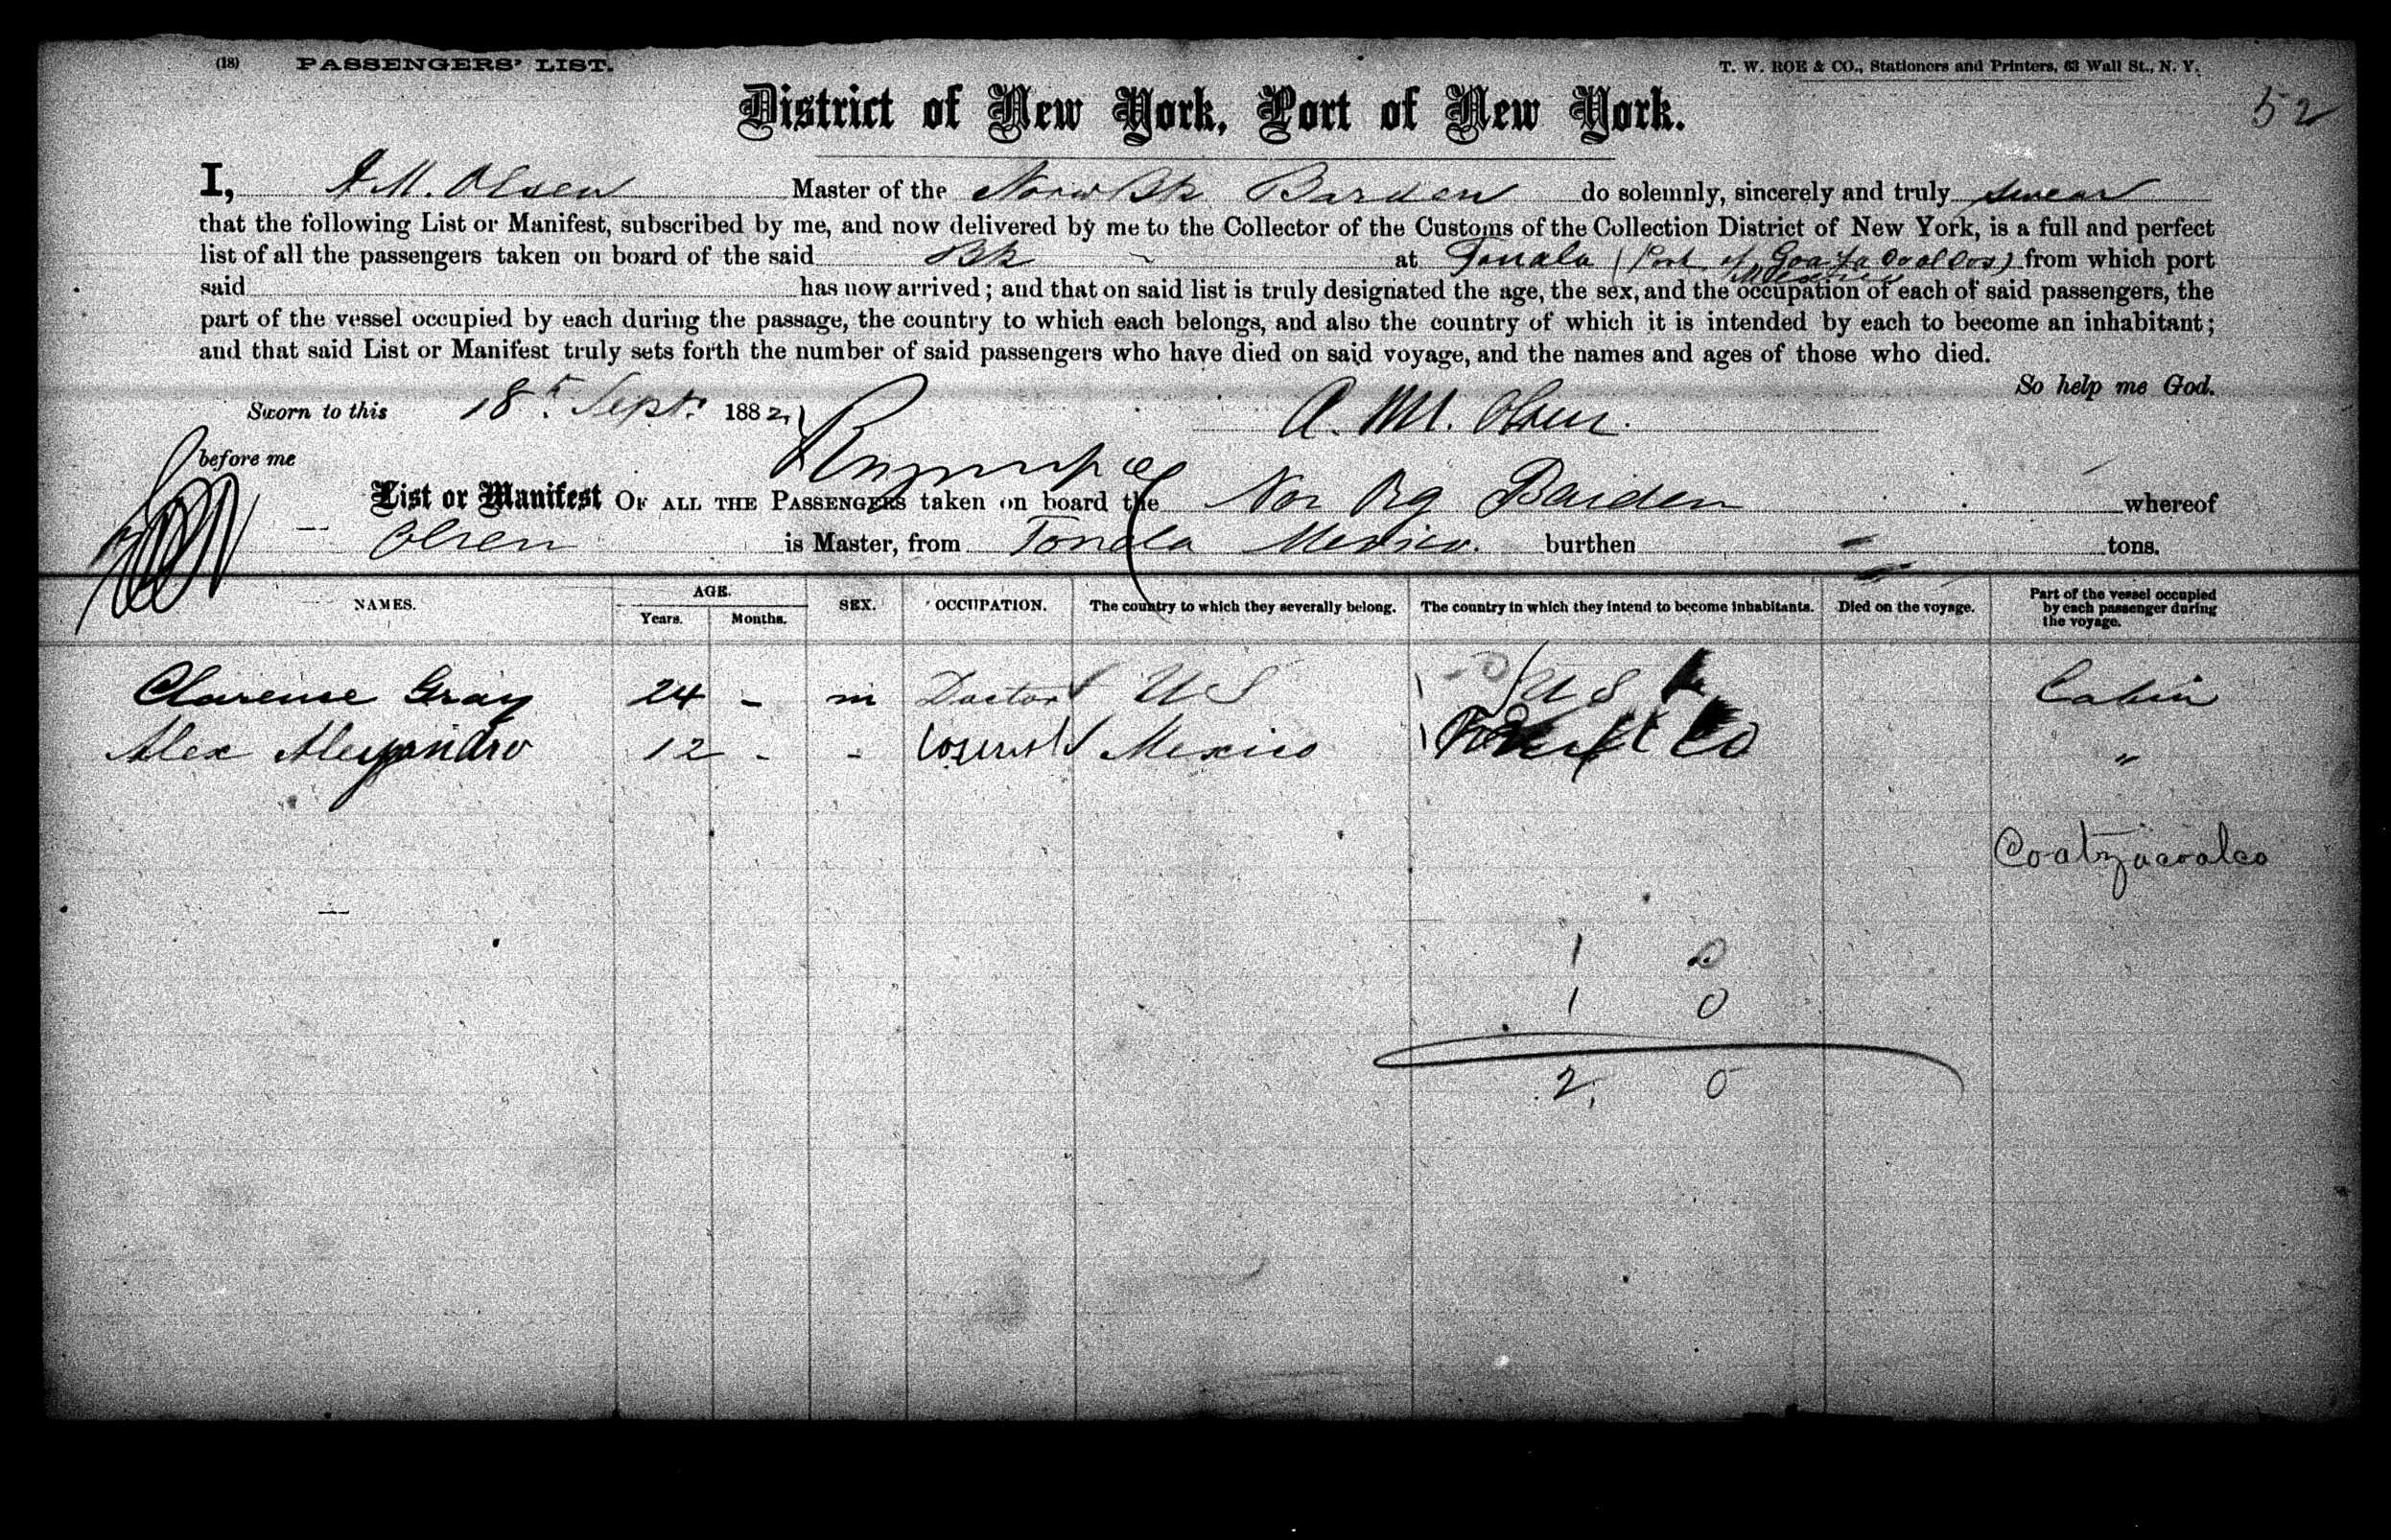 (18) PASSENGERS' LIST. T. W. ROE & CO., Stationers and Printers, 63 Wall St., N. Y.
52
District of New York, Port of New York.
I, A M. Olsen Master of the Norw Bk Barden do solemnly, sincerely and truly swear
that the following List or Manifest, subscribed by me, and now delivered by me to the Collector of the Customs of the Collection District of New York, is a full and perfect
list of all the passengers taken on board of the said Bk at Tonala (Port of from which port
Mexico
said has now arrived; and that on said list is truly designated the age, the sex, and the occupation of each of said passengers, the
part of the vessel occupied by each during the passage, the country to which each belongs, and also the country of which it is intended by each to become an inhabitant;
and that said List or Manifest truly sets forth the number of said passengers who have died on said voyage, and the names and ages of those who died.
So help me God.
Sworn to this 18t Sept. 1882, A. M. Olsen.
before me
List or Manifest OF ALL THE PASSENGERS taken on board the Nor Bg Barden whereof
Olsen is Master, from Tonala Mexico. burthen - tons.
NAMES. AGE. SEX. OCCUPATION. The country to which they severally belong. The country in which they intend to become inhabitants. Died on the voyage. Part of the vessel occupied by each passenger during the voyage.
Years. Months.
Clarence Gray 24 - m Doctor US US Cabin
Alex 12 - - Mexico "
Coatzacoalco
1 0
1 0
2, 0